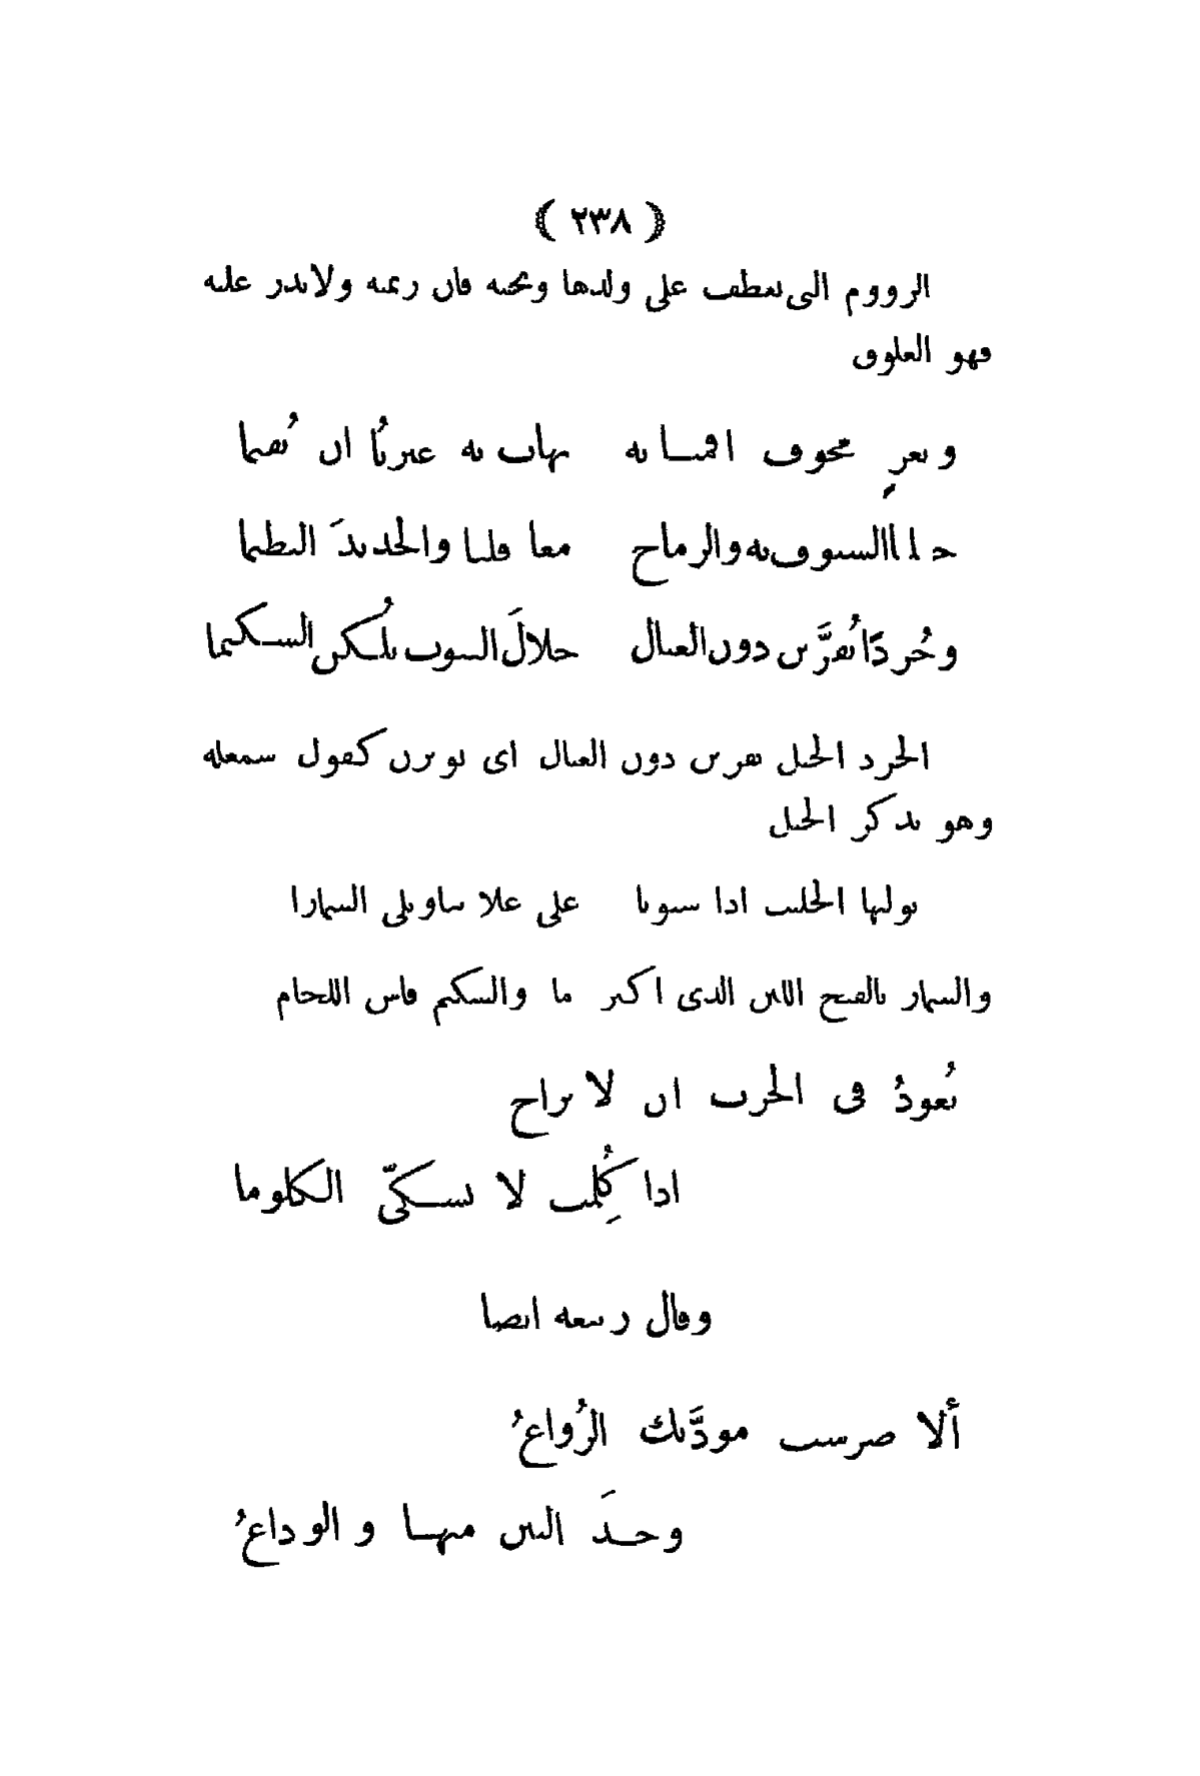 ﴿ ٢٣٨ ﴾
الرووم التى تعطف على ولدها وتحبه فان رئمته ولا تدر عليه
فهو العلوق
وثغرٍ مخوف اقمنا به يهاب به غيرنُا ان يُقيما
جعلنا السيوف به والرماح معاقلنا والحديدَ النظيما
وجُردًا يُقرَّبن دون العيال خلالَ البيوت يلُكن الشكيما
الجرد الخيل يقربن دون العيال اى يوثرن كقول شمعلة
وهو يذكر الخيل
نوليها الحليب اذا شتونا على علاتنا ونلى السمارا
والسمار بالفتح اللبن الذى اكثر ما والشكيم فاس اللجام
تُعوذُ فى الحرب ان لا براح
اذا كُلِمت لا تشكّى الكلوما
وقال ربيعة ايضا
ألا صرمت مودَّتك الرُواعُ
وجدَ البين منها والوداعُ